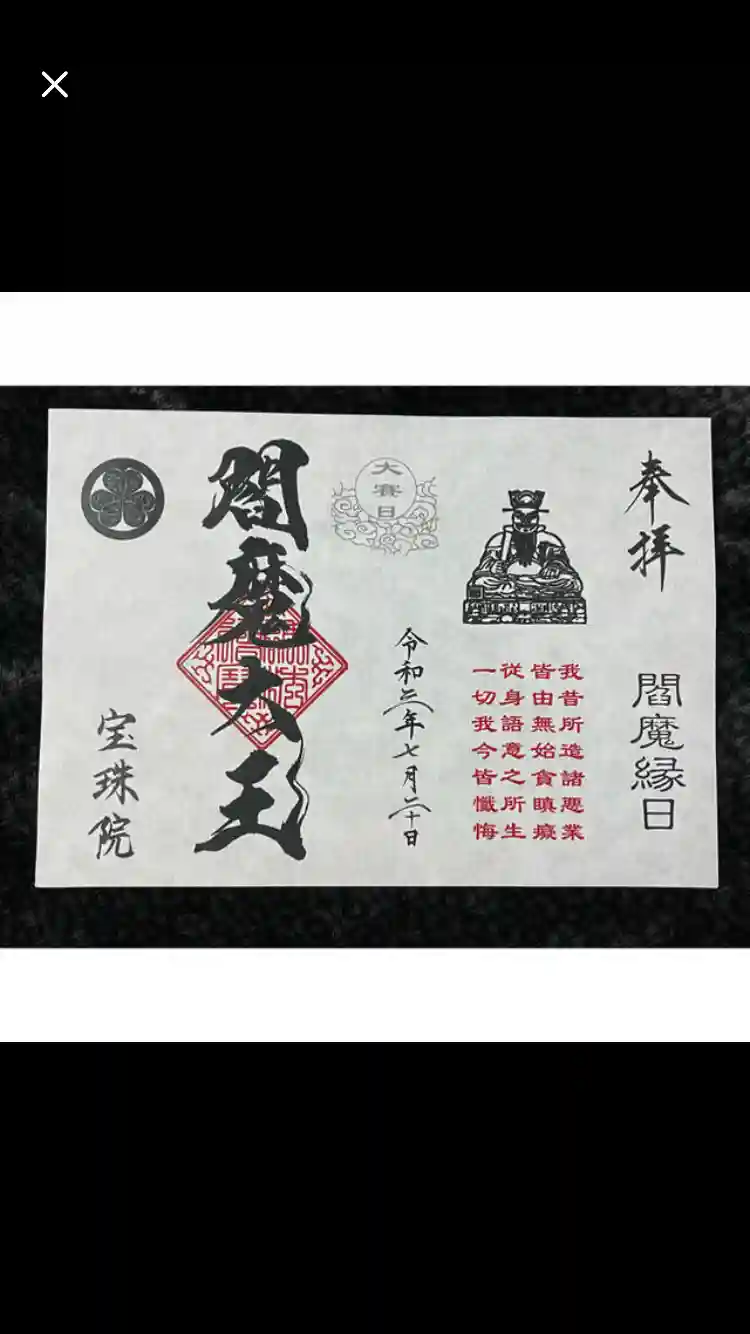 奉拝
閻魔縁日
我昔所造諸悪業
皆由無始貪瞋癡
從身語意之所生
一切我今皆懺悔
大賽日
令和二年七月二十日
閻魔大王
宝珠院